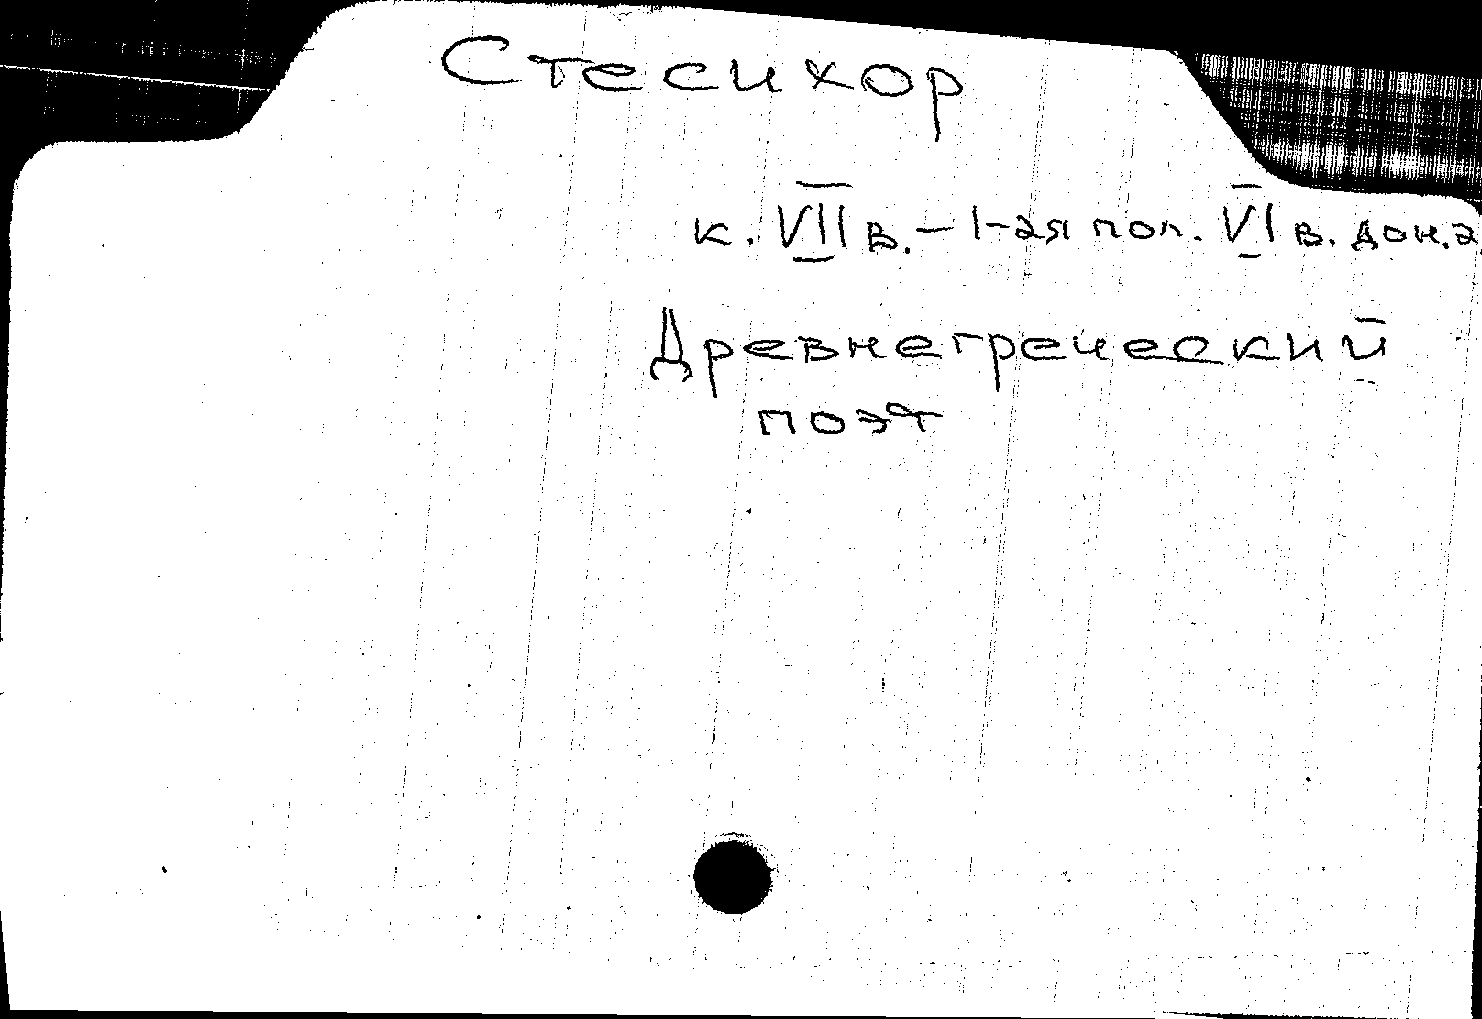 Стесихор
к. VII в. – 1-ая пол. VI в. до н.э
Древнегреческий
поэт